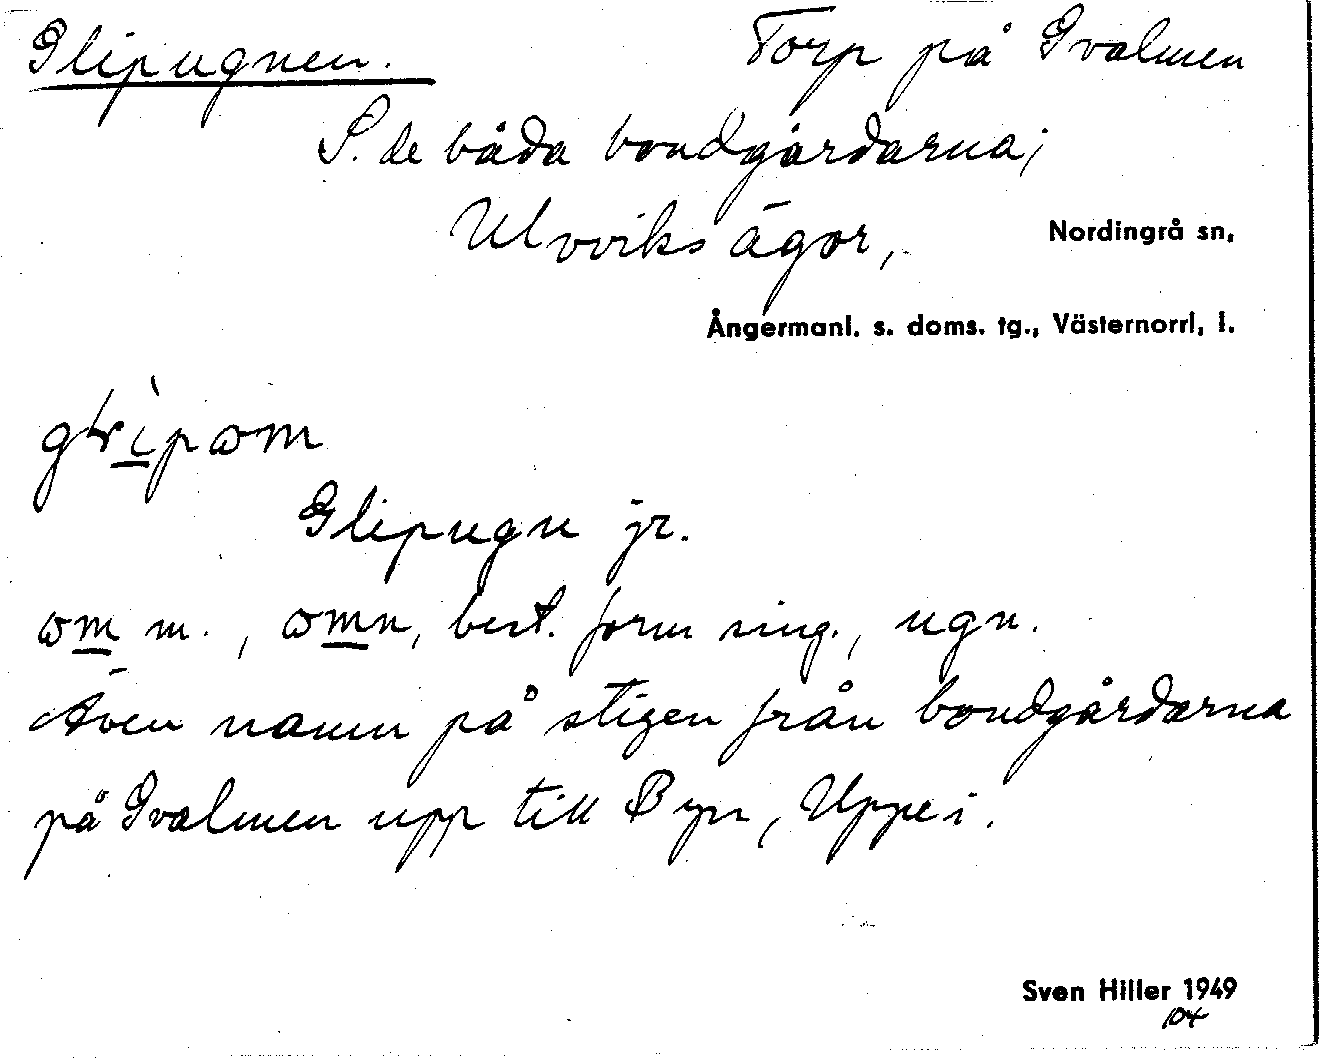 Glipugnen. Torp på Gvalmen
S. de båda bondgårdarna;
Ulvviks ägor, Nordingrå sn,
Ångermanl. s. doms. tg., Västernorrl, l.
Glipugn jr.
ɷm m. , ɷmn, best. form sing., ugn.
Även namn på stigen från bondgårdarna
på Gvalmen upp till Byn, Uppe i.
Sven Hiller 1949
104